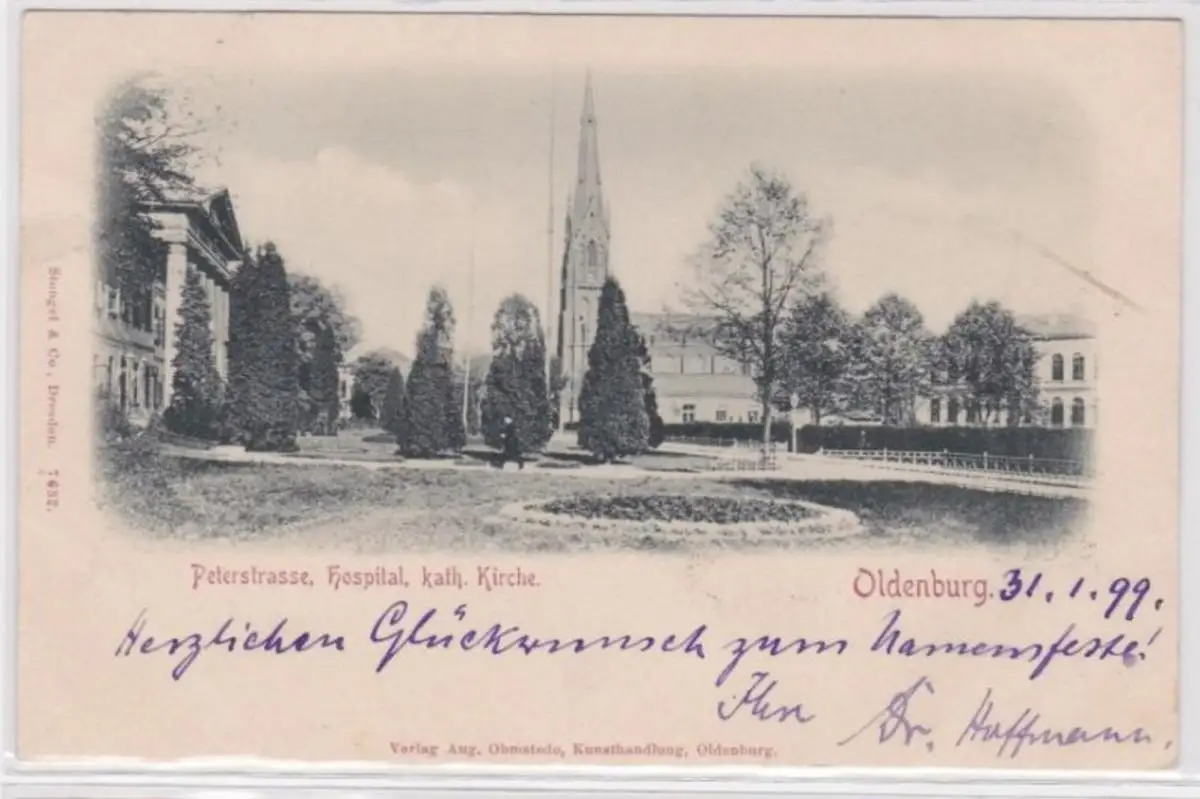 Stengel & Co., Dresden. 7632.
Peterstrasse, Hospital, kath. Kirche.
Oldenburg. 31. 1. 99.
Herzlichen Glückwunsch zum Namensfeste!
Ihr Dr. Hoffmann.
Verlag Aug. Ohmstede, Kunsthandlung, Oldenburg.